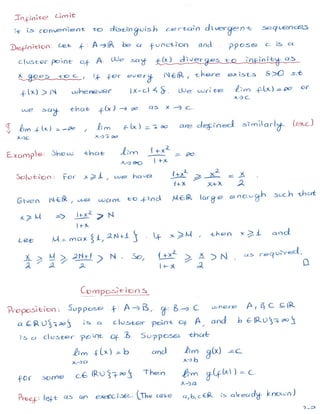 Infinite Limit
it is convenient to distinguish certain divergent sequences
Definition: Let f A→R be a function and pposes c is a
cluster point of A We say f(x) diverges to infinity as
x goes to c, if for every N∈R, there exists δ>0 s.t
f(x) > N whenever |x-c|<δ. We write lim f(x)=∞ or
x→c
we say that f(x) → ∞ as x → c.
lim f(x) = -∞, lim f(x) = ±∞ are defined similarly (exc)
x→c x→±∞
Example: Show that lim 1+x² / 1+x = ∞
x→∞
Solution: For x≥1, we have 1+x² / 1+x ≥ x² / x+x = x / 2
Given N∈R, we want to find M∈R large enough such that
x≥M ⇒ 1+x² / 1+x > N
Let M = max {1, 2N+1}. If x≥M, then x≥1 and
x/2 ≥ M/2 ≥ 2N+1 / 2 > N. So, 1+x² / 1+x ≥ x/2 > N, as required.
□
Compositions
Proposition: Suppose f A→B, g: B→C where A, B, C ⊆R
a∈RU{±∞} is a cluster point of A, and b∈RU{±∞}
is a cluster point of B. Suppose that
lim f(x) = b and lim g(x) = c
x→a x→b
for some c∈RU{±∞} Then lim g(f(x)) = c
x→a
Proof: left as an exercise. (The case a,b,c∈R is already known)